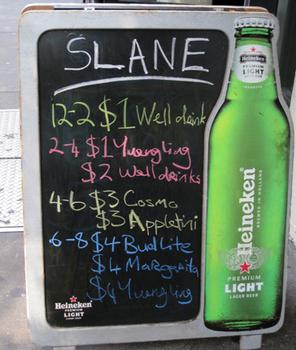 SLANE
12-2 $1 Well drink
2-4 $1 Yuengling
$2 Well drinks
4-6 $3 Cosmo
$3 Appletini
6-8 $4 Bud Lite
$4 Margarita
$4 Yuengling
Heineken
PREMIUM
LIGHT
Heineken
PREMIUM
LIGHT
Heineken
BREWED IN HOLLAND
PREMIUM
LIGHT
LAGER BEER